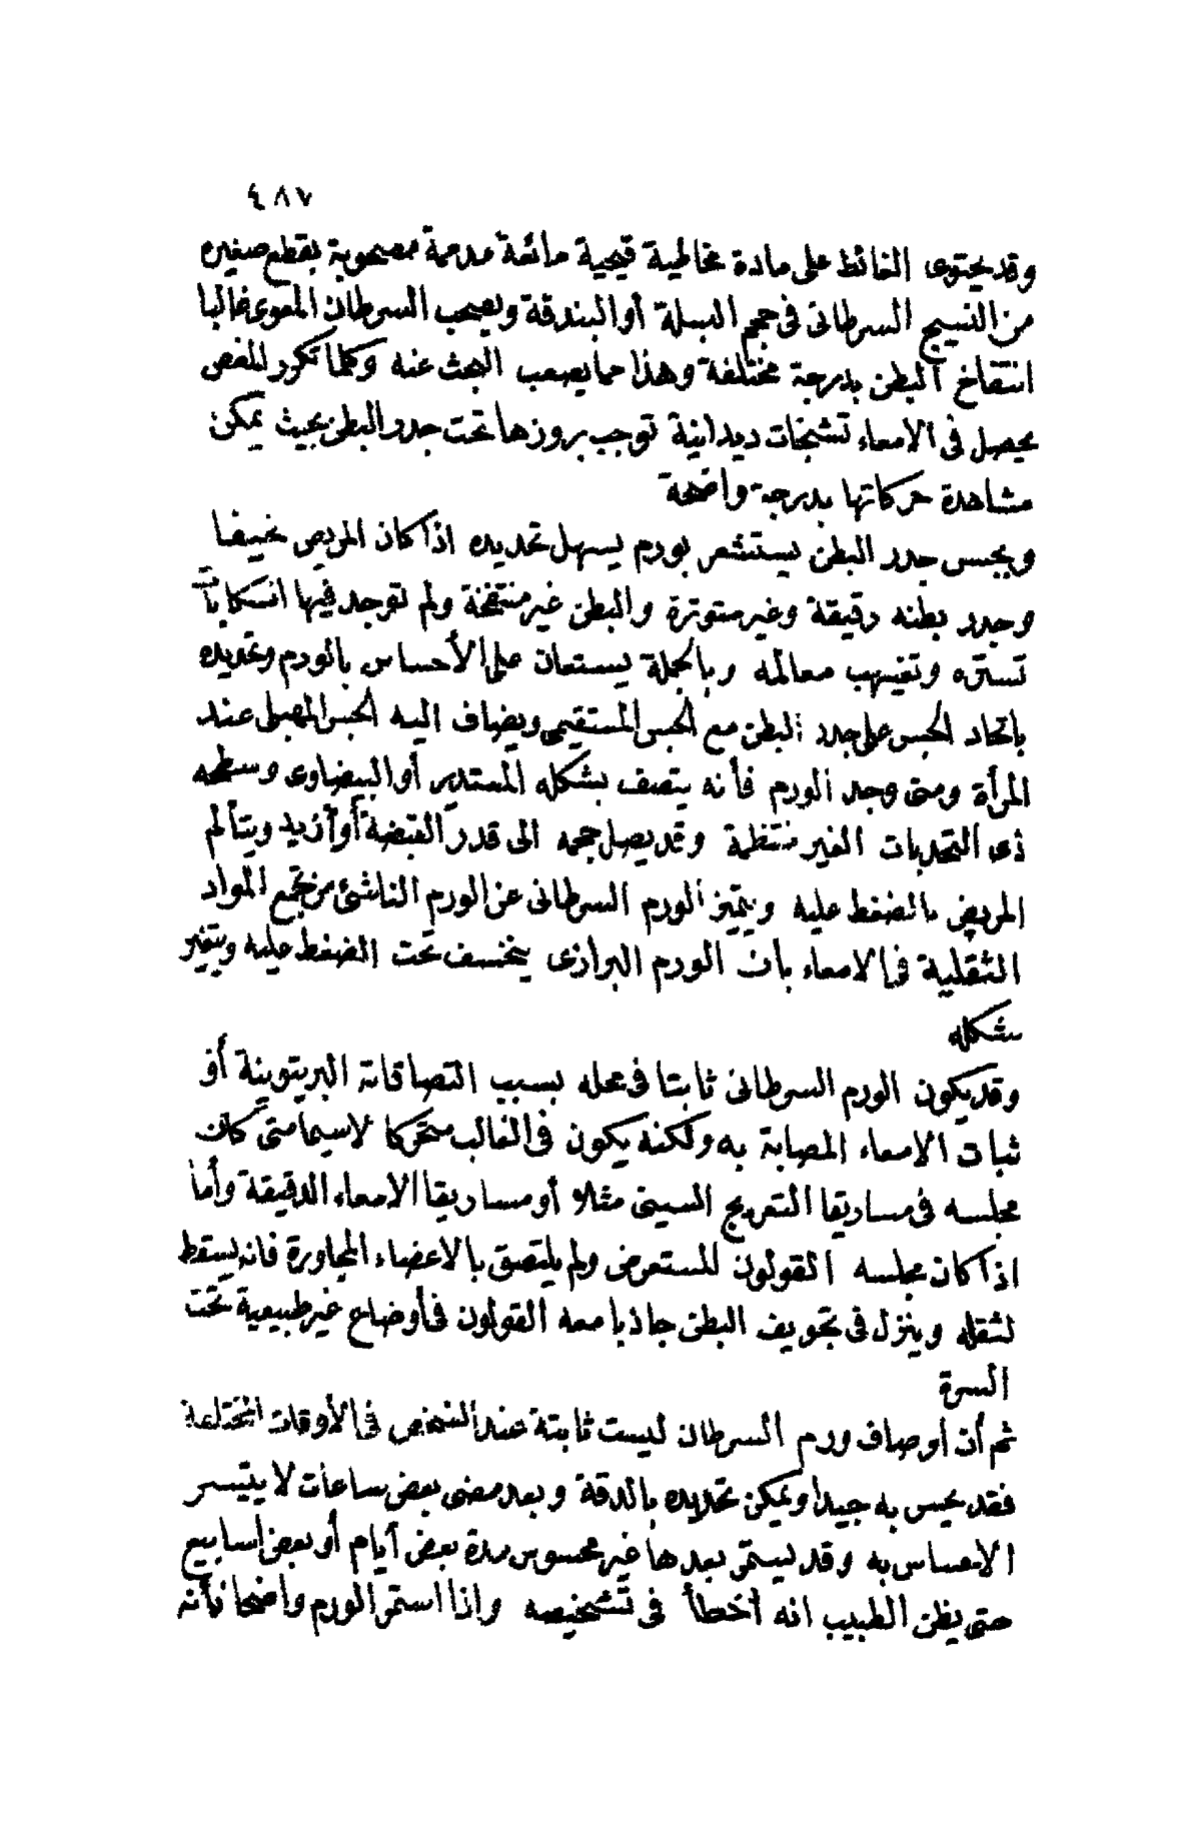 ٤٨٧
وقد يحتوى الغائط على مادة مخاطية قيحية مائعة مدممة مصحوبة بقطع صغيره
من النسيج السرطانى فى حجم البسلة أو البندقة ويصحب السرطان المعوى غالبا
انتفاخ البطن بدرجة مختلفة وهذا مما يصعب البحث عنه وكلما تكرر المغص
يحصل فى الامعاء تشنجات ديدانية توجب بروزها تحت جدر البطن بحيث يمكن
مشاهدة حركاتها بدرجة واضحة
وبجس جدر البطن يستشعر بورم يسهل تحديده اذا كان المريض نحيفا
وجدر بطنه رقيقة وغير متوترة والبطن غير منتفخة ولم توجد فيها انسكابات
تستره وتغيهب معالمه وبالجملة يستعان على الأحساس بالورم وتحديده
باتحاد الجس على جدر البطن مع الجس المستقيمى ويضاف اليه الجس المهبلى عند
المرأة ومتى وجد الورم فأنه يتصف بشكله المستدير أو البيضاوى وسطحه
ذى التحدبات الغير منتظمة وقد يصل حجمه الى قدر القبضة أو أزيد ويتألم
المريض بالضغط عليه ويتميز الورم السرطانى عن الورم الناشئ من تجمع المواد
الثقلية فى الامعاء بان الورم البرازى ينخسف تحت الضغط عليه ويتغير
شكله
وقد يكون الورم السرطانى ثابتا فى محله بسبب التصاقاته البريتوينية أو
ثبات الامعاء المصابة به ولكنه يكون فى الغالب متحركا لاسيما متى كان
مجلسه فى مساريقا التعريج السينى مثلا أو مساريقا الامعاء الدقيقة وأما
اذا كان مجلسه القولون المستعرض ولم يلتصق بالاعضاء المجاورة فانه يسقط
لثقله وينزل فى تجويف البطن جاذبا معه القولون فى أوضاع غير طبيعية تحت
السرة
ثم أن أوصاف ورم السرطان ليست ثابتة عند الشخص فى الأوقات المختلفة
فقد يحس به جيدا ويمكن تحديده بالدقة وبعد مضى بعض ساعات لا يتيسر
الاحساس به وقد يستمر بعدها غير محسوس مدة بعض أيام أو بعض أسابيع
حتى يظن الطبيب انه أخطأ فى تشخيصه واذا استمر الورم واضحا فأنه